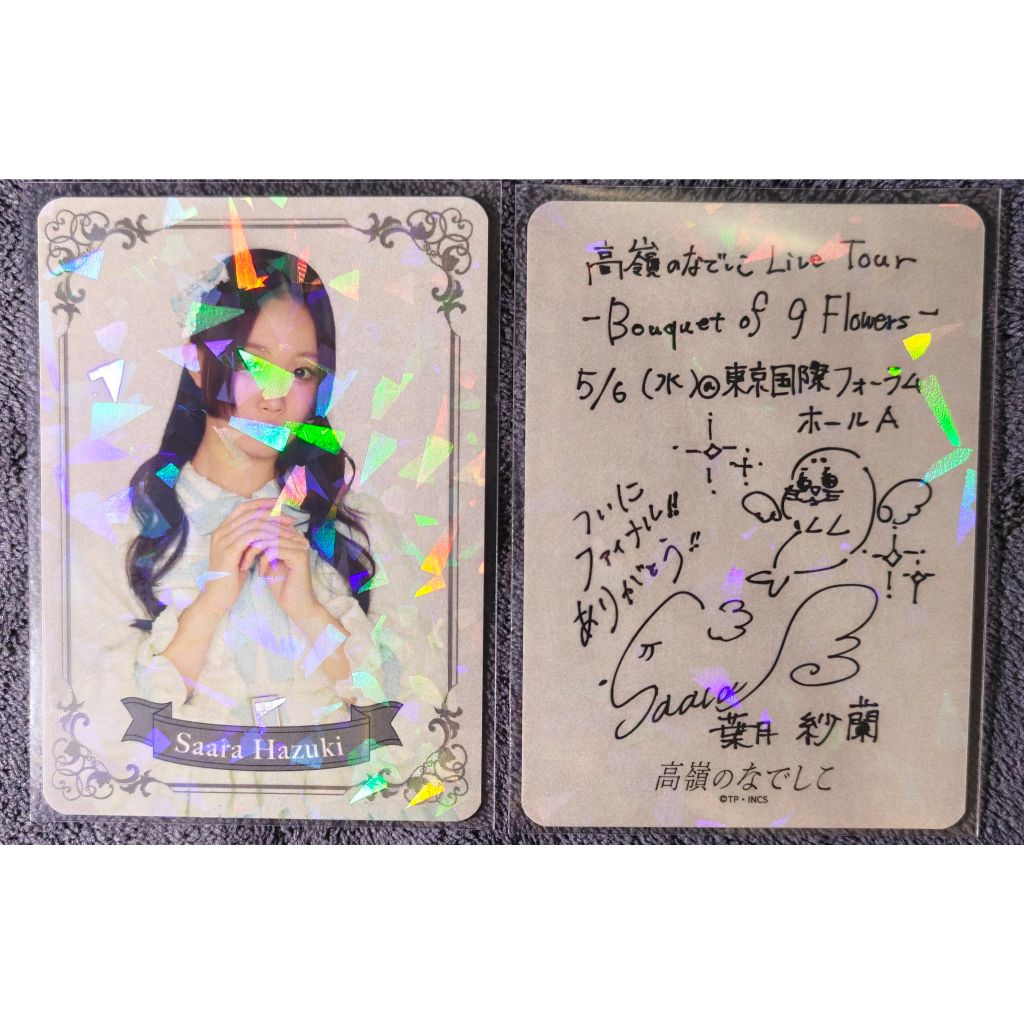 Saara Hazuki
高嶺のなでしこ Live Tour
-Bouquet of 9 Flowers-
5/6 (水)@東京国際フォーラム
ホールA
ついに
ファイナル!!
ありがとう!!
Saara
葉月 紗蘭
高嶺のなでしこ
©TP・INCS